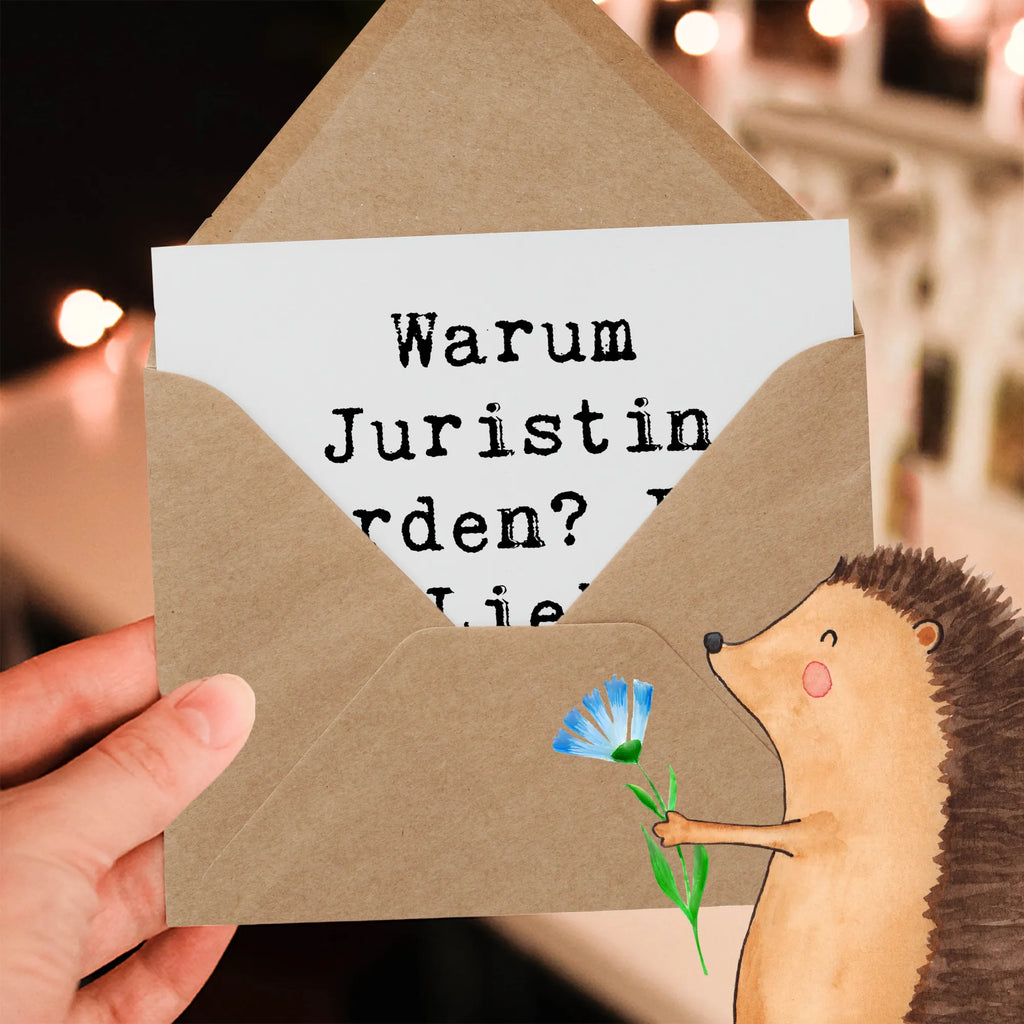 Warum
Juristin
rden?
Lie